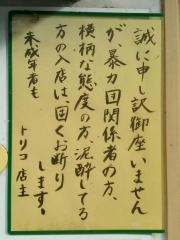 誠に申し訳御座いません
が暴力団関係者の方、
横柄な態度の方、泥酔してる
方の入店は、固くお断り
します。
未成年者も
トリコ店主